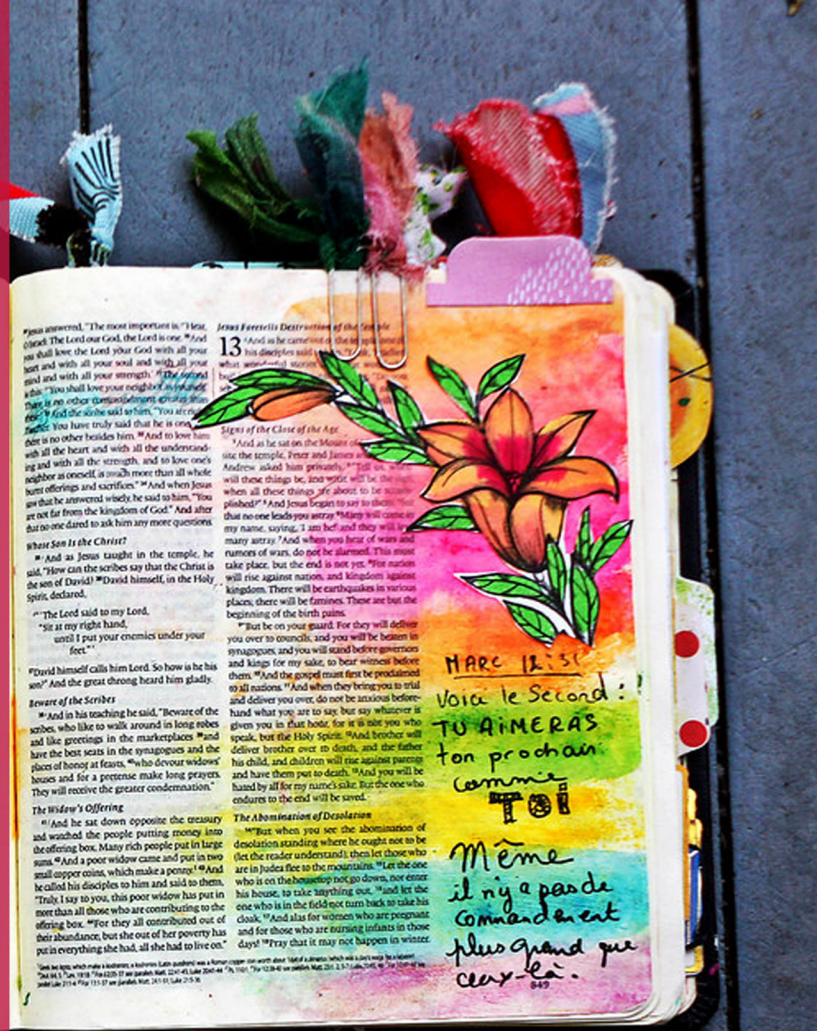 Jesus answered, "The most important is, 'Hear,
O Israel: The Lord our God, the Lord is one. 30And
you shall love the Lord your God with all your
heart and with all your soul and with all your
mind and with all your strength.' 31The second
is this: 'You shall love your neighbor as yourself.'
There is no other commandment greater than
these." 32And the scribe said to him, "You are right,
Teacher. You have truly said that he is one,
there is no other besides him. 33And to love him
with all the heart and with all the understand-
ing and with all the strength, and to love one's
neighbor as oneself, is much more than all whole
burnt offerings and sacrifices." 34And when Jesus
saw that he answered wisely, he said to him, "You
are not far from the kingdom of God." And after
that no one dared to ask him any more questions.
Whose Son Is the Christ?
35And as Jesus taught in the temple, he
said, "How can the scribes say that the Christ is
the son of David? 36David himself, in the Holy
Spirit, declared,
"'The Lord said to my Lord,
"Sit at my right hand,
until I put your enemies under your
feet."'
37David himself calls him Lord. So how is he his
son?" And the great throng heard him gladly.
Beware of the Scribes
38And in his teaching he said, "Beware of the
scribes, who like to walk around in long robes
and like greetings in the marketplaces 39and
have the best seats in the synagogues and the
places of honor at feasts, 40who devour widows'
houses and for a pretense make long prayers.
They will receive the greater condemnation."
The Widow's Offering
41And he sat down opposite the treasury
and watched the people putting money into
the offering box. Many rich people put in large
sums. 42And a poor widow came and put in two
small copper coins, which make a penny. 43And
he called his disciples to him and said to them,
"Truly, I say to you, this poor widow has put in
more than all those who are contributing to the
offering box. 44For they all contributed out of
their abundance, but she out of her poverty has
put in everything she had, all she had to live on."
Jesus Foretells Destruction of the Temple
13 1And as he came out of the temple, one of
his disciples said to
what wonderful stones
Signs of the Close of the Age
3And as he sat on the Mount of
site the temple, Peter and James and
Andrew asked him privately, 4"Tell us, when
will these things be, and what will be the sign
when all these things are about to be accom-
plished?" 5And Jesus began to say to them, "See
that no one leads you astray. 6Many will come in
my name, saying, 'I am he!' and they will lead
many astray. 7And when you hear of wars and
rumors of wars, do not be alarmed. This must
take place, but the end is not yet. 8For nation
will rise against nation, and kingdom against
kingdom. There will be earthquakes in various
places; there will be famines. These are but the
beginning of the birth pains.
9"But be on your guard. For they will deliver
you over to councils, and you will be beaten in
synagogues, and you will stand before governors
and kings for my sake, to bear witness before
them. 10And the gospel must first be proclaimed
to all nations. 11And when they bring you to trial
and deliver you over, do not be anxious before-
hand what you are to say, but say whatever is
given you in that hour, for it is not you who
speak, but the Holy Spirit. 12And brother will
deliver brother over to death, and the father
his child, and children will rise against parents
and have them put to death. 13And you will be
hated by all for my name's sake. But the one who
endures to the end will be saved.
The Abomination of Desolation
14"But when you see the abomination of
desolation standing where he ought not to be
(let the reader understand), then let those who
are in Judea flee to the mountains. 15Let the one
who is on the housetop not go down, nor enter
his house, to take anything out, 16and let the
one who is in the field not turn back to take his
cloak. 17And alas for women who are pregnant
and for those who are nursing infants in those
days! 18Pray that it may not happen in winter.
MARC 12:31
Voici le Second :
TU AiMERAS
ton prochain
comme
TOI
Même
il n'y a pas de
commandement
plus grand que
ceux-là.
849